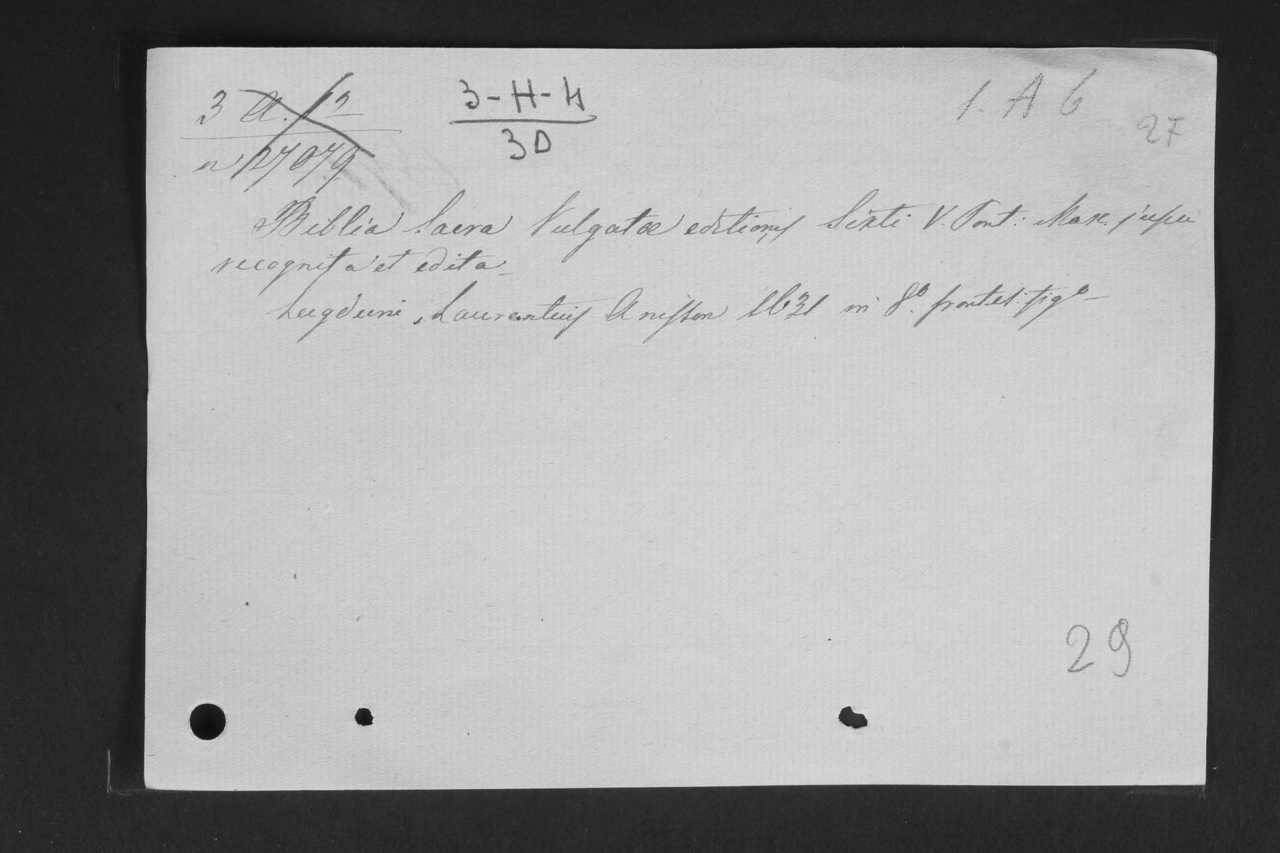 3 A. 12
n° 27079
3-H-4
30
1. A 6
27
Biblia Sacra Vulgatæ editionis Sixti V. Pont: Max. jussu
recognita et edita
Lugduni, Laurentius Anisson 1631 in 8° frontes. fig°
29